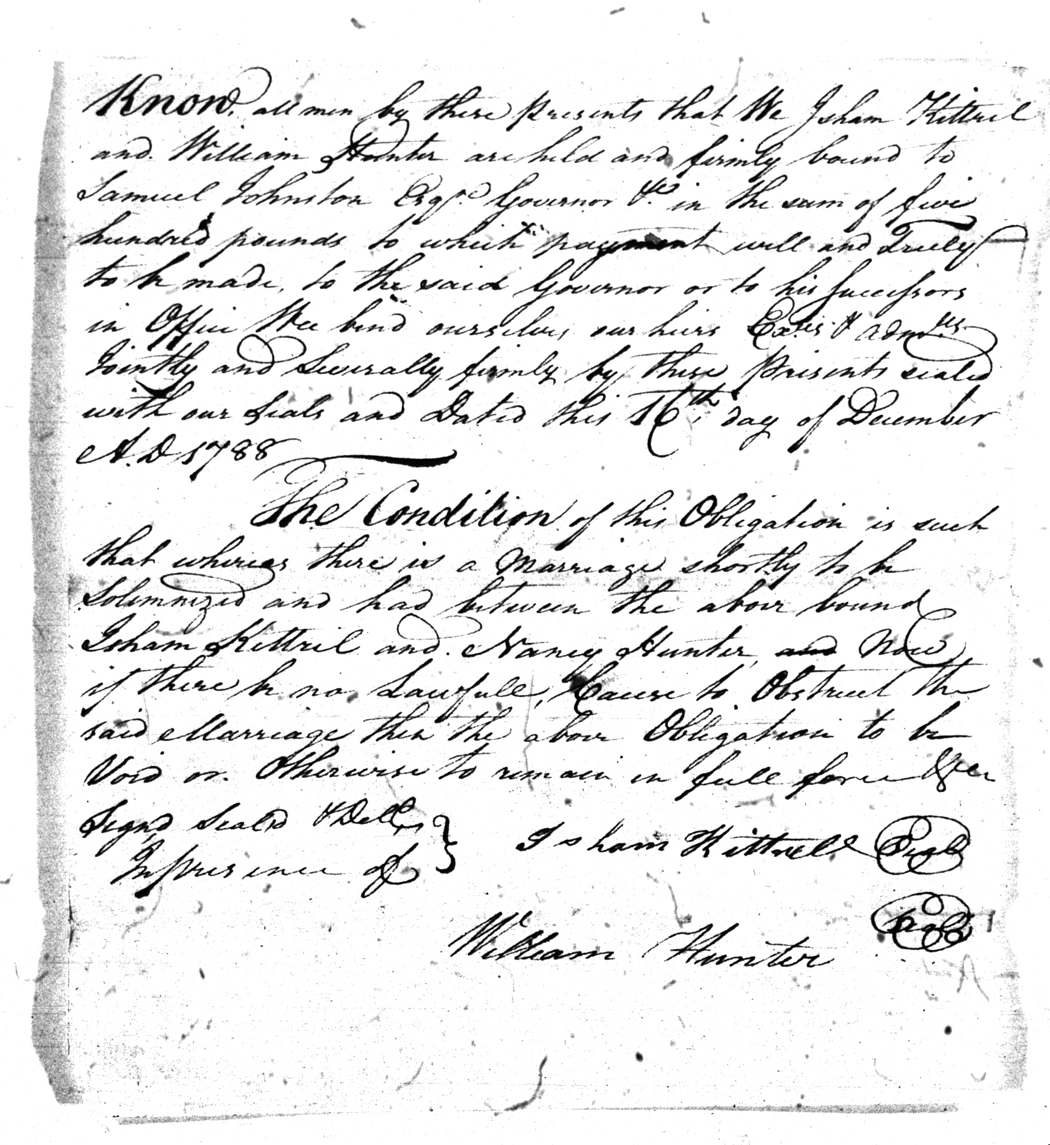 Know all men by these presents that We Isham Kittril
and William Hunter are held and firmly bound to
Samuel Johnston Esqr. Governor &c. in the sum of five
hundred pounds to which payment will and Truly
to be made, to the said Governor or to his Successors
in Office Wee bind ourselves our heirs Exers & admrs
Jointly and Severally firmly by these Presents sealed
with our Seals and Dated this 16th. day of December
A.D 1788
The Condition of this Obligation is such
that whereas there is a Marriage shortly to be
Solemnized and had between the above bound
Isham Kittril and Nancy Hunter, and Now
if there be no Lawfull Cause to Obstruct the
said Marriage then the above Obligation to be
Void or Otherwise to remain in full force &c
Signd Seald & Delld
In presence of
Isham Kittrell Seal
Seal
William Hunter